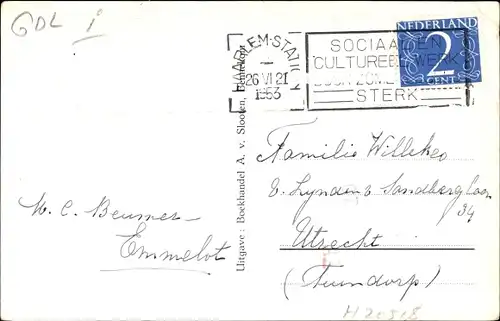 GDL i
HAARLEM-STATION
26 VI 21
1953
SOCIAAL EN
CULTUREEL WERK
DOOR ZOMERZEGELS
STERK
NEDERLAND
2
CENT
Uitgave: Boekhandel A. v. Slooten, Bennekom
Familie Willekes
v. Lynden v Sandberglaan
34
Utrecht
(Tuindorp)
M. C. Beumer
Emmelot